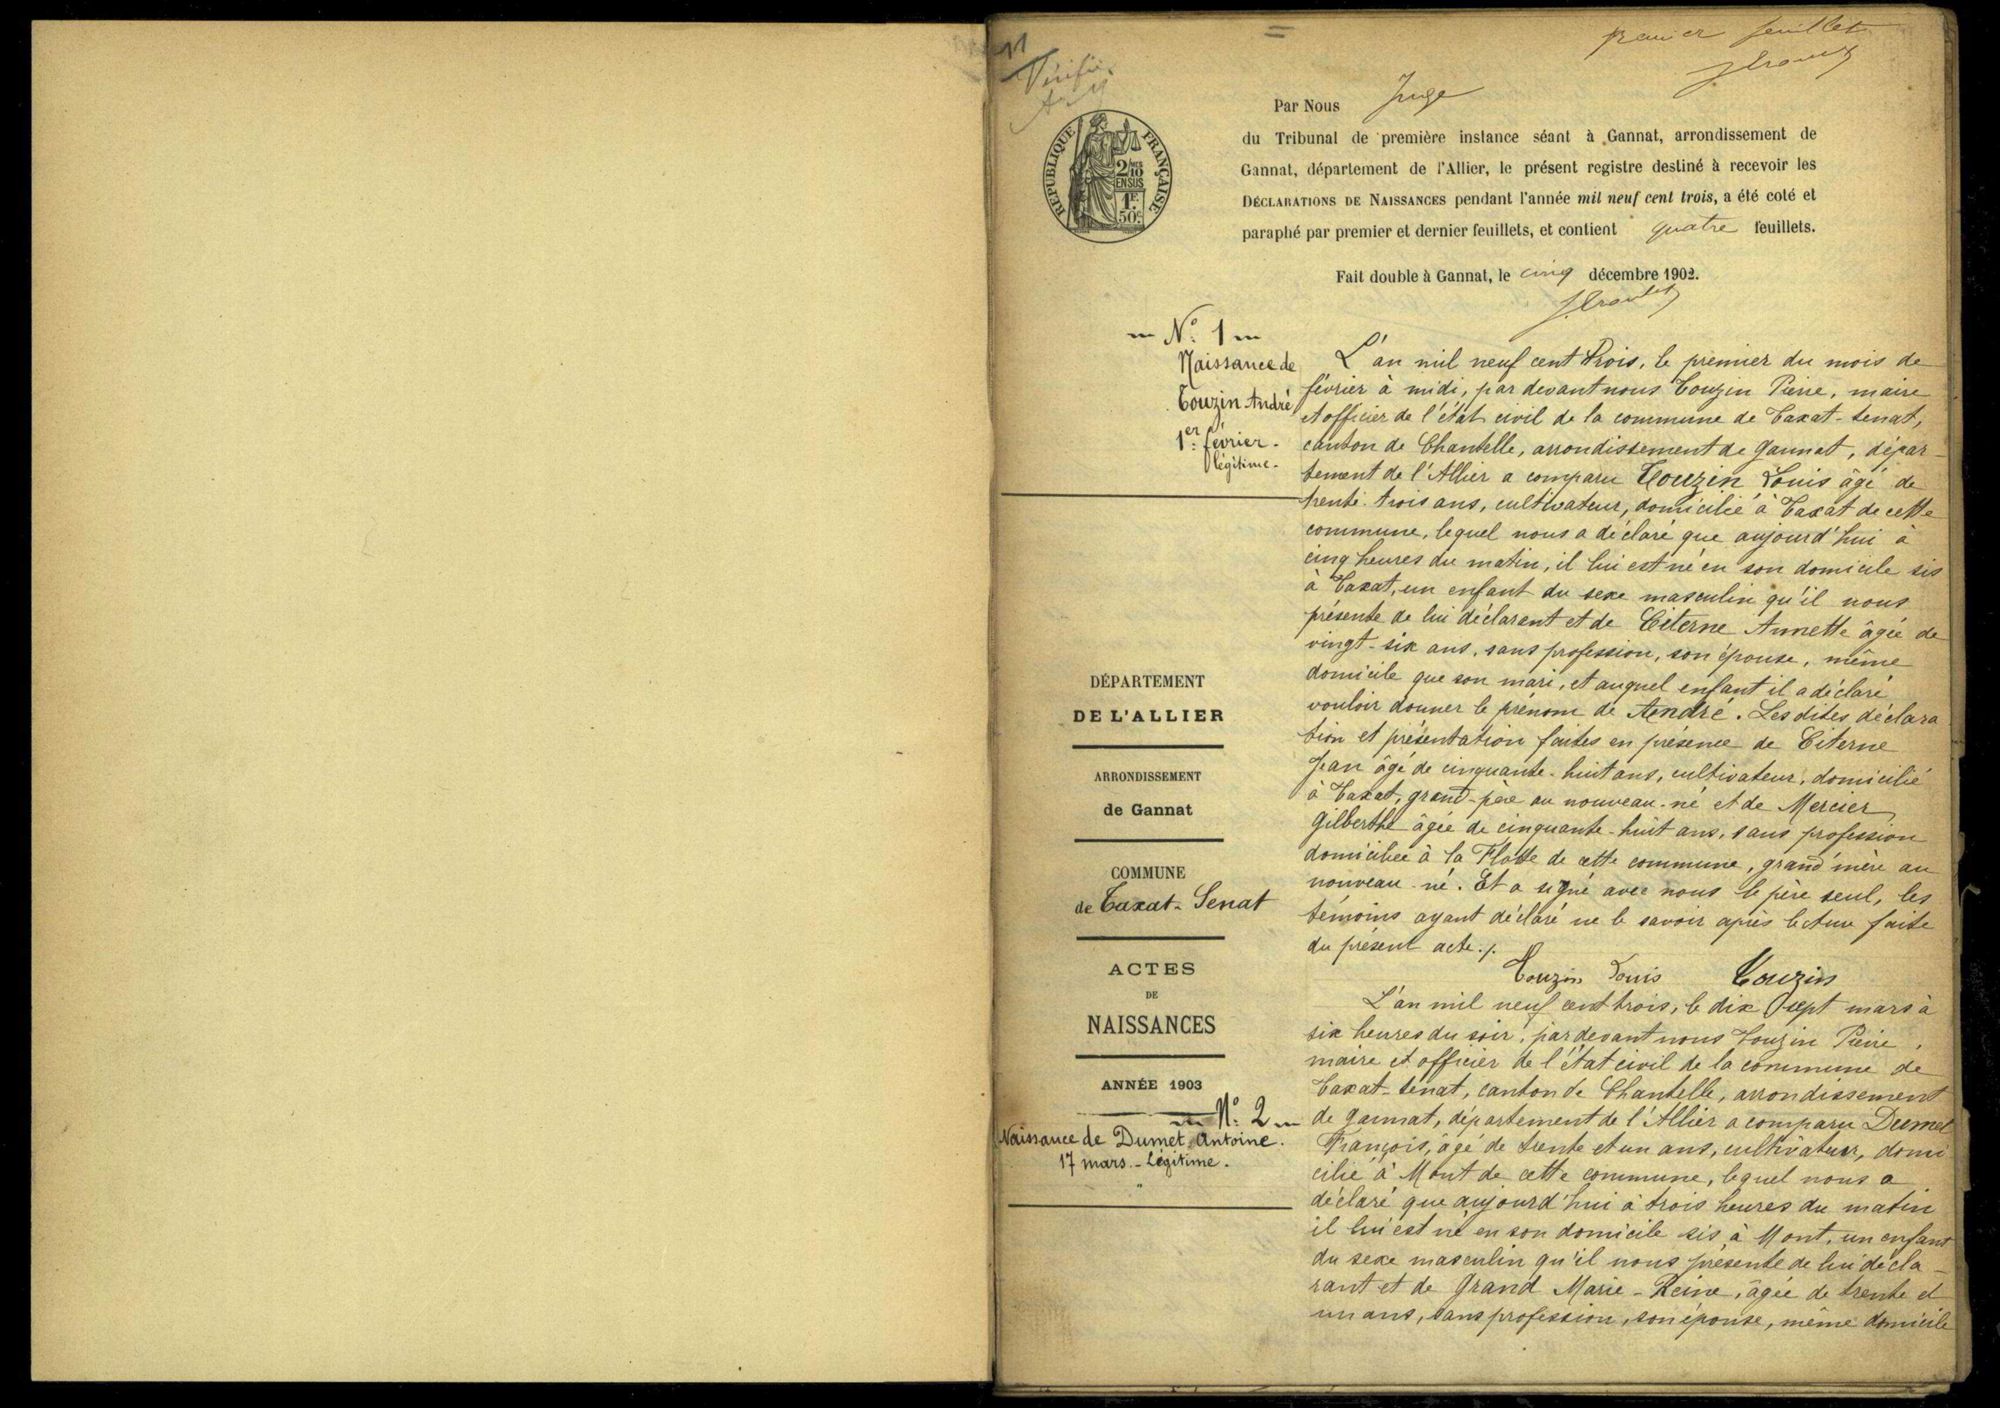 premier feuillet
Vérifié
Par Nous Juge
du Tribunal de première instance séant à Gannat, arrondissement de
Gannat, département de l'Allier, le présent registre destiné à recevoir les
DÉCLARATIONS DE NAISSANCES pendant l'année mil neuf cent trois, a été coté et
paraphé par premier et dernier feuillets, et contient quatre feuillets.
Fait double à Gannat, le cinq décembre 1902.
RÉPUBLIQUE FRANÇAISE
2/10
EN SUS
1F
50c
N° 1
Naissance de
Touzin André
1er février.
légitime.
L'an mil neuf cent trois, le premier du mois de
février à midi, par devant nous Touzin Pierre, maire
et officier de l'état civil de la commune de Taxat-Senat,
canton de Chantelle, arrondissement de Gannat, dépar-
tement de l'Allier a comparu Touzin Louis âgé de
trente trois ans, cultivateur, domicilié à Taxat de cette
commune, lequel nous a déclaré que aujourd'hui à
cinq heures du matin, il lui est né en son domicile sis
à Taxat, un enfant du sexe masculin qu'il nous
présente de lui déclarent et de Citerne Annette âgée de
vingt-six ans, sans profession, son épouse, même
domicile que son mari, et auquel enfant il a déclaré
vouloir donner le prénom de André. Les dites déclara
tion et présentation faites en présence de Citerne
Jean âgé de cinquante-huit ans, cultivateur, domicilié
à Taxat, grand-père au nouveau-né et de Mercier
Gilberthe âgée de cinquante-huit ans, sans profession
domiciliée à la Flotte de cette commune, grand'mère au
nouveau-né. Et a signé avec nous le père seul, les
témoins ayant déclaré ne le savoir après lecture faite
du présent acte./.
Touzin Louis Touzin
DÉPARTEMENT
DE L'ALLIER
ARRONDISSEMENT
de Gannat
COMMUNE
de Taxat-Senat
ACTES
DE
NAISSANCES
ANNÉE 1903
N° 2
Naissance de Dumet, Antoine.
17 mars.- Légitime.
"
L'an mil neuf cent trois, le dix sept mars à
six heures du soir, par devant nous Touzin Pierre,
maire et officier de l'état civil de la commune de
Taxat-Senat, canton de Chantelle, arrondissement
de Gannat, département de l'Allier a comparu Dumet
François, âgé de trente et un ans, cultivateur, domi
cilié à Mont de cette commune, lequel nous a
déclaré que aujourd'hui à trois heures du matin
il lui est né en son domicile sis à Mont, un enfant
du sexe masculin qu'il nous présente de lui décla-
rant et de Grand Marie-Reine, âgée de trente et
un ans, sans profession, son épouse, même domicile